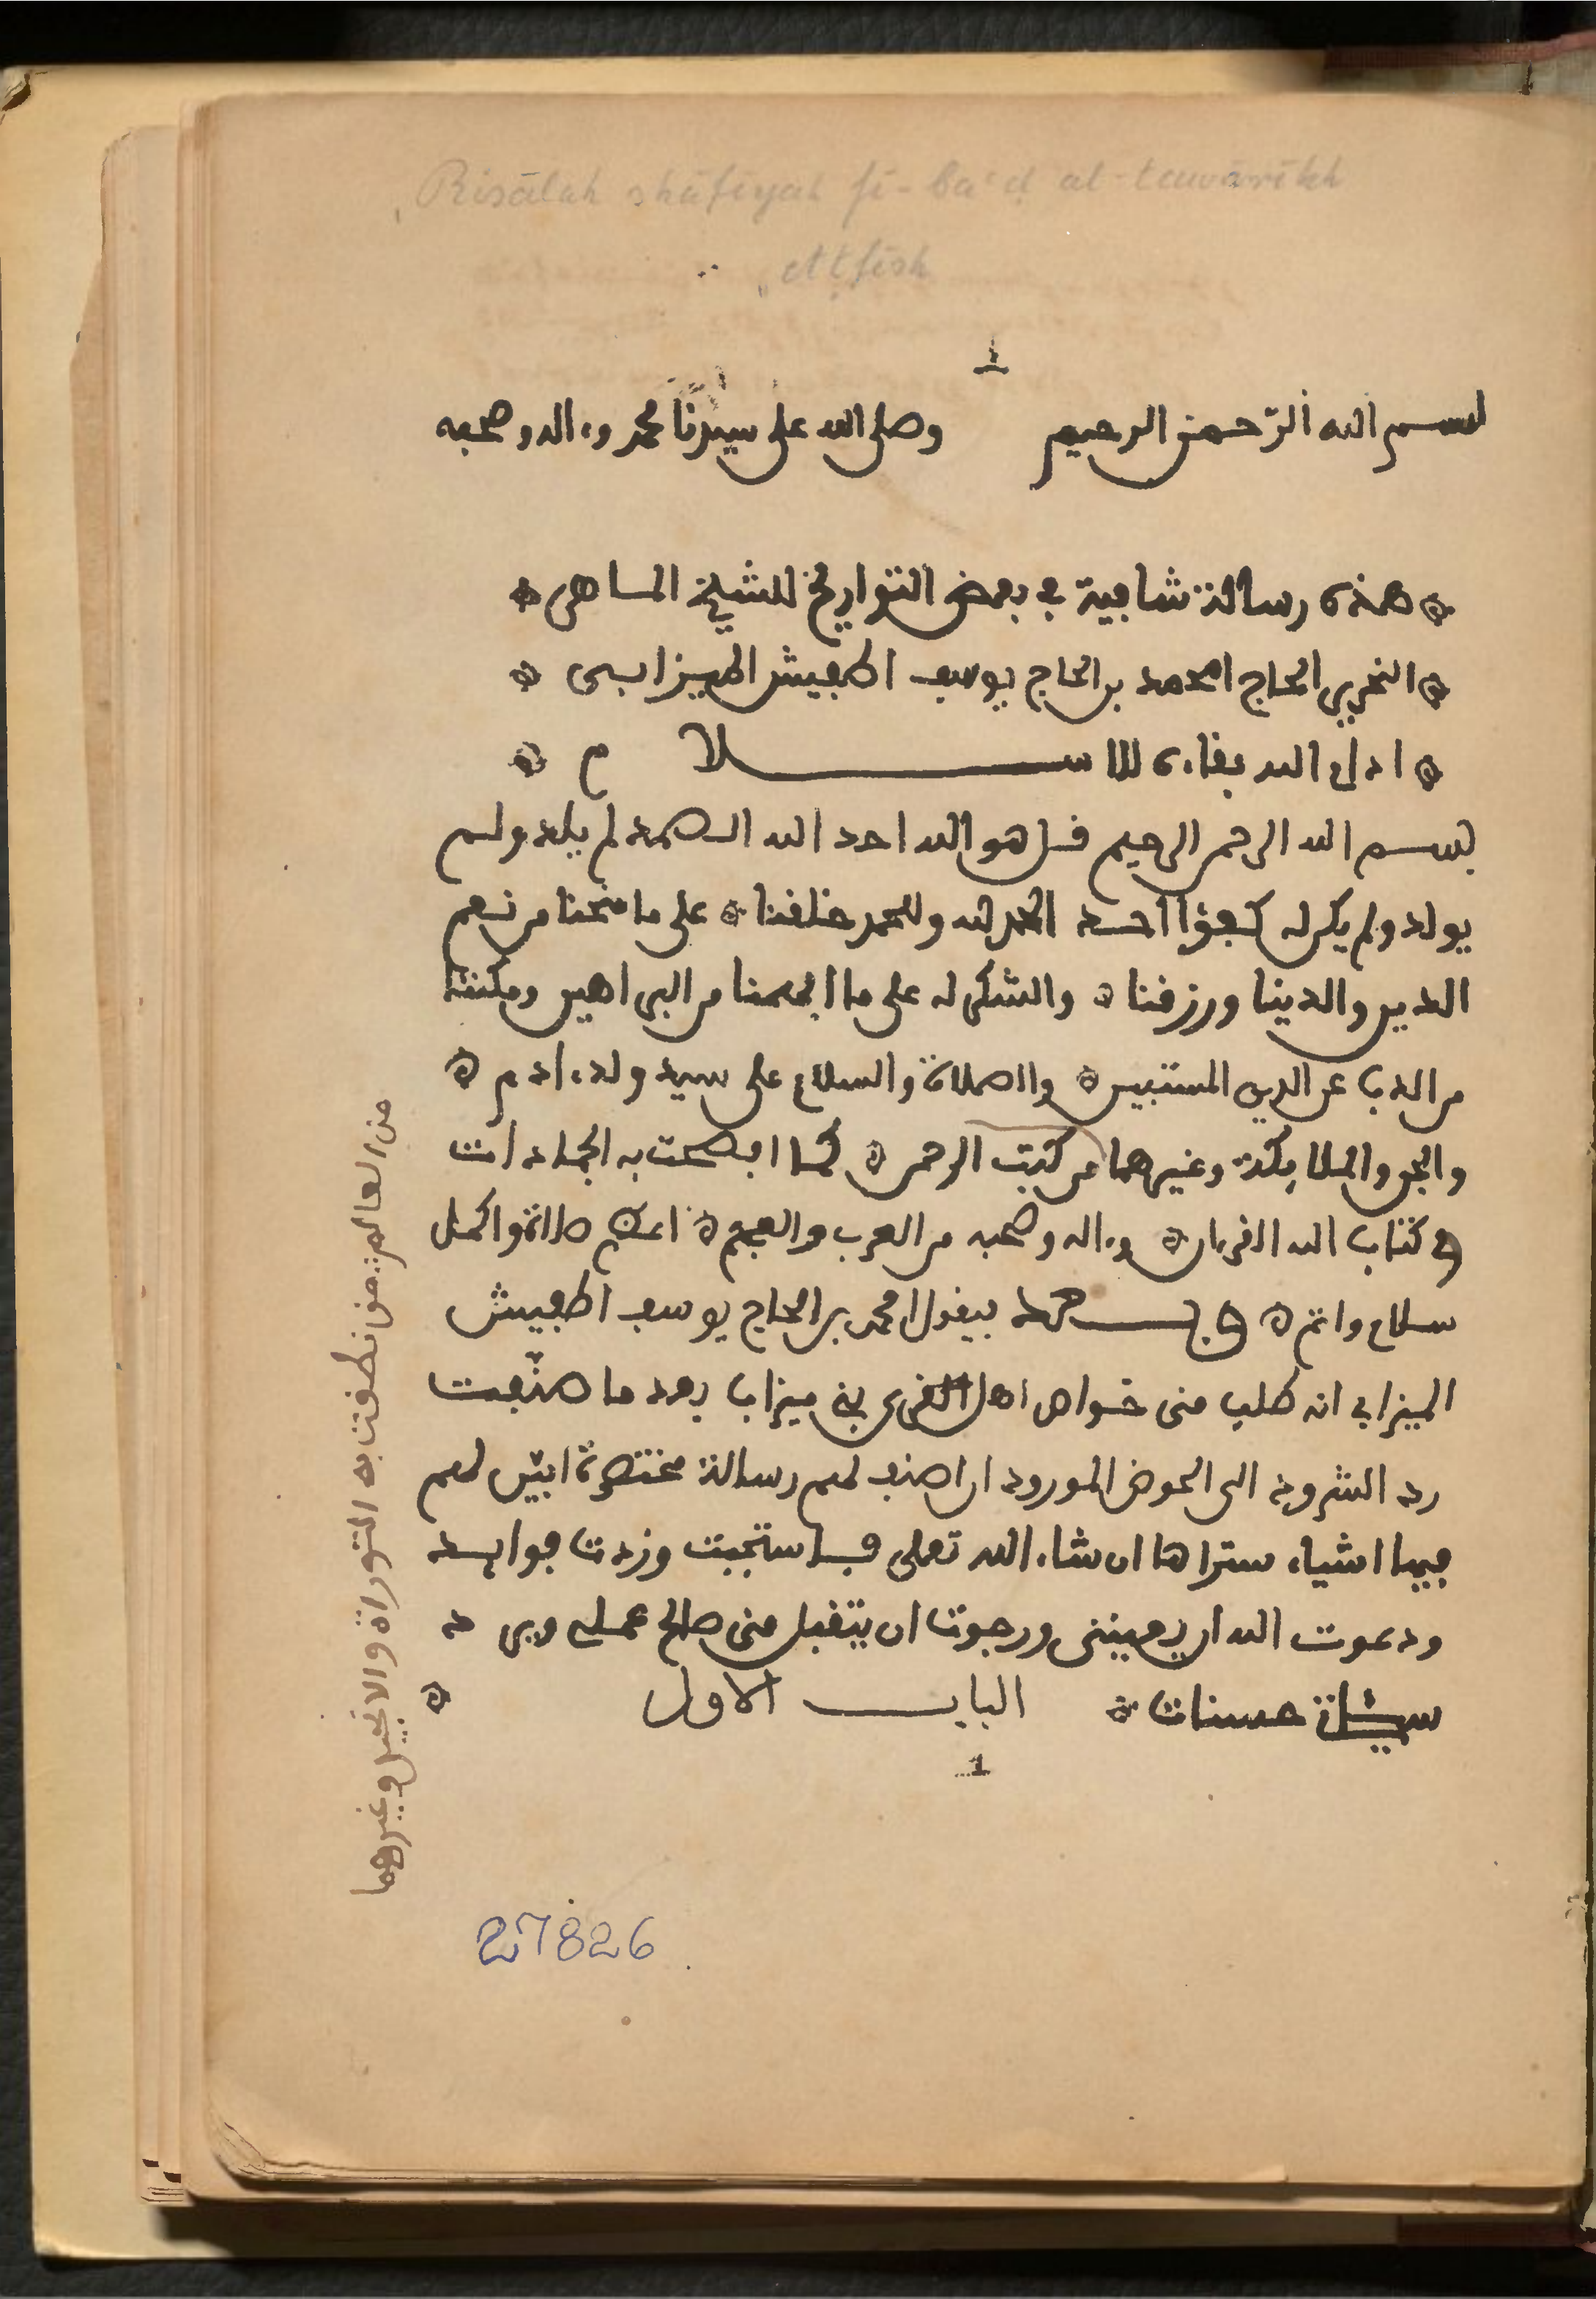 Risālah shāfīyah fī-baʿḍ al-tawārīkh
Aṭfīsh
1
بسم الله الرحمن الرحيم وصلى الله على سيدنا محمد وءاله وصحبه
هذه رسالة شافية في بعض التواريخ للشيخ الماهر
النحرير الحاج امحمد بن الحاج يوسف اطفيش الميزابي
ادام الله بقاءه للاسلام
بسم الله الرحمن الرحيم قل هو الله احد الله الصمد لم يلد ولم
يولد ولم يكن له كفؤا احد الحمد لله وللحمد خلقنا على ما منحنا من نعم
الدين والدينا ورزقنا والشكر له على ما الهمنا من البراهين ومكننا
من الذب عن الدين المستبين والصلاة والسلام على سيد ولد ءادم
والجن والملائكة وغيرهما من كتب الرحمن كما افصحت به الجمادات
في كتاب الله القرءان وءاله وصحبه من العرب والعجم اعم صلاة واكمل
سلام واتم وبعد فيقول امحمد بن الحاج يوسف اطفيش
الميزابي انه طلب مني خواص اهل القرى بني ميزاب بعد ما صنفت
رد الشرود الى الحوض المورود ان اصنف لهم رسالة مختصرة ابين لهم
فيها اشياء ستراها ان شاء الله تعلى فاستجبت وزدت فوايد
ودعوت الله ان يعينني ورجوت ان يتقبل مني صالح عملي ويرد
سيئاته حسنات الباب الاول
1
من العالم من نطقت به التوراة والانجيل وغيرهما
27826